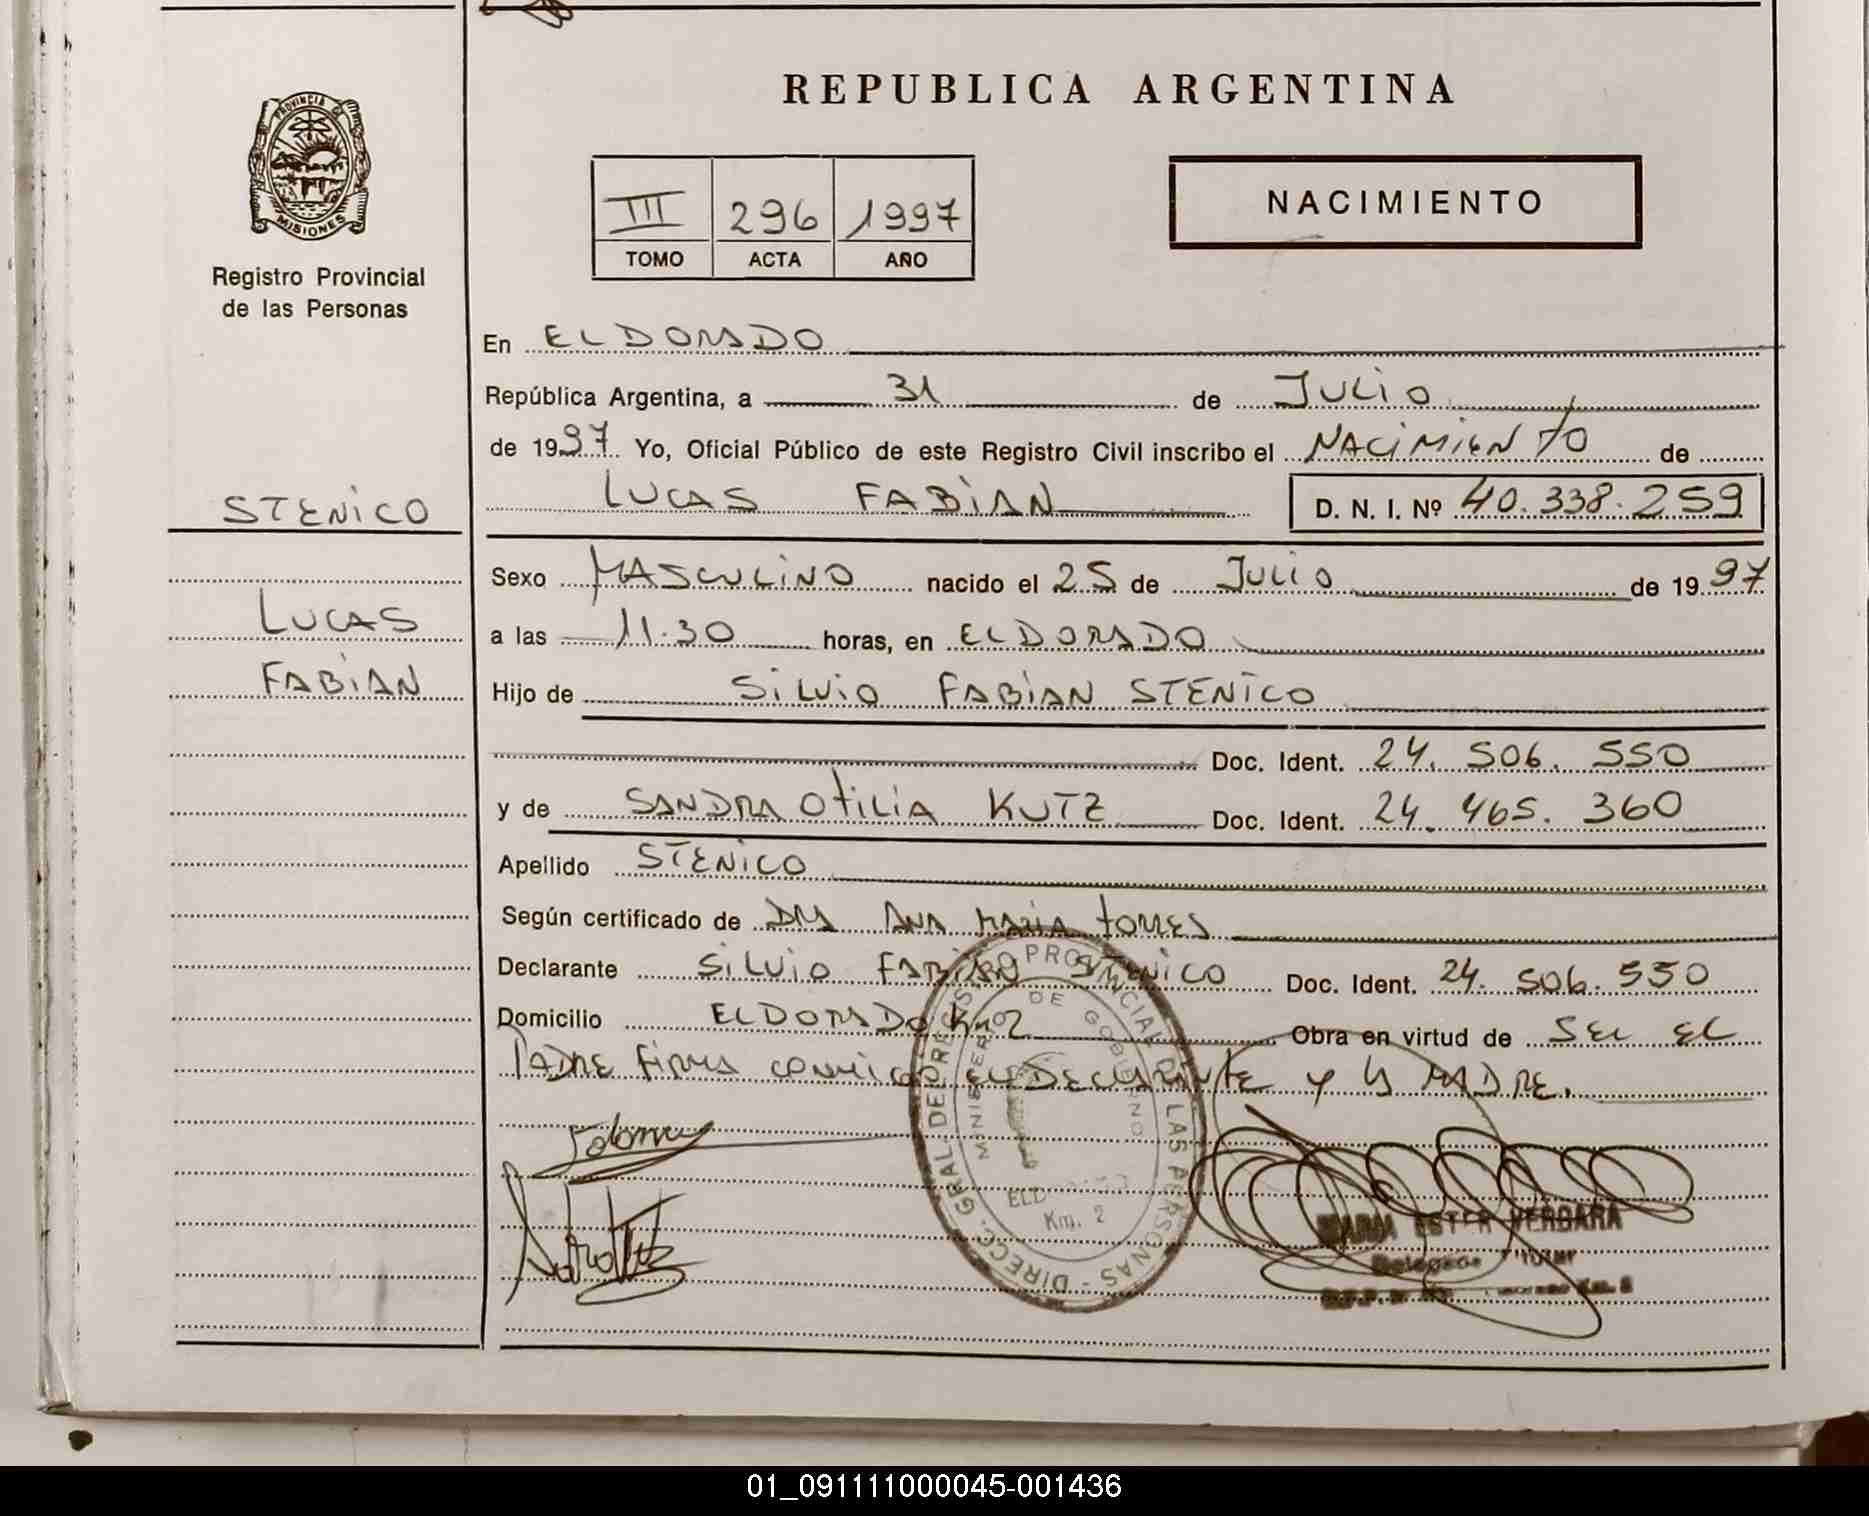 REPUBLICA ARGENTINA
PROVINCIA DE
MISIONES
Registro Provincial
de las Personas
III 296 1997
TOMO ACTA AÑO
NACIMIENTO
En ELDORADO
República Argentina, a 31 de JULIO
de 1997 Yo, Oficial Público de este Registro Civil inscribo el NACIMIENTO de
LUCAS FABIAN D. N. I. Nº 40.338.259
STENICO
LUCAS
FABIAN
Sexo MASCULINO nacido el 25 de JULIO de 1997
a las 11.30 horas, en ELDORADO
Hijo de SILVIO FABIAN STENICO
Doc. Ident. 24.506.550
y de SANDRA OTILIA KUTZ Doc. Ident. 24.465.360
Apellido STENICO
Según certificado de DRA ANA MARIA TORRES
Declarante SILVIO FABIAN STENICO Doc. Ident. 24.506.550
Domicilio ELDORADO Km 2 Obra en virtud de SER EL
PADRE FIRMA CONMIGO EL DECLARANTE Y LA MADRE.
DIRECC. GRAL DEL REGISTRO PROVINCIAL DE LAS PERSONAS
MINISTERIO DE GOBIERNO
ELDORADO
Km. 2
MARIA ESTER VERGARA
Delegada Titular
Km. 2
01_091111000045-001436